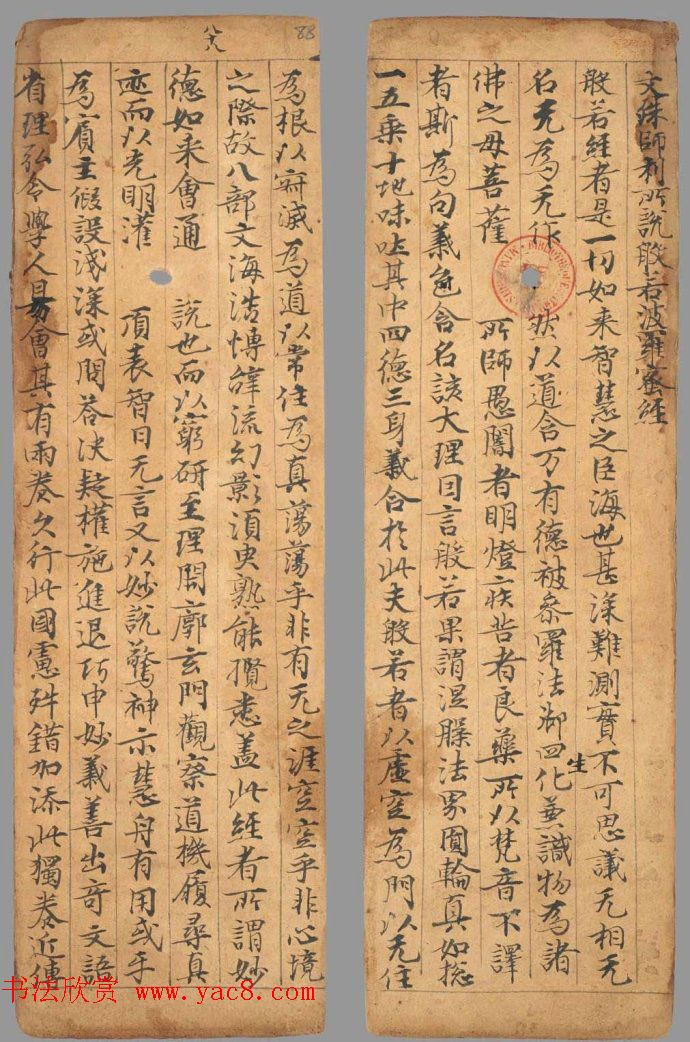 文殊師利所說般若波羅蜜經
般若經者是一切如來智慧之巨海也甚深難測實不可思議无相无
名无為无作 然以道含万有德被森羅法御四生化兼識物為諸
佛之母菩薩 所師愚闇者明燈疾苦者良藥所以梵音不譯
者斯為向義包含名該大理因言般若果謂涅槃法界圓輪真如惣
一五乘十地味其中四德三身義合於此夫般若者以虛空為門以无住
為根以寂滅為道以常住為真蕩蕩乎非有无之涯空空乎非心境
之際故八部文海浩愽辭流幻影須臾孰能攬悉盖此經者所謂妙
德如来會通 說也而以窮研至理開廓玄門觀察道機履尋真
迹而以光明灌 頂表智日无言又以妙說驚神示慧舟有用或乎
為賓主假設淺深或問荅決疑權施進退巧申妙義善出奇文諮
省理弘令學人易會其有兩卷久行此國憲殊錯加添此獨卷近傳
八十八
88
书法欣赏 www.yac8.com